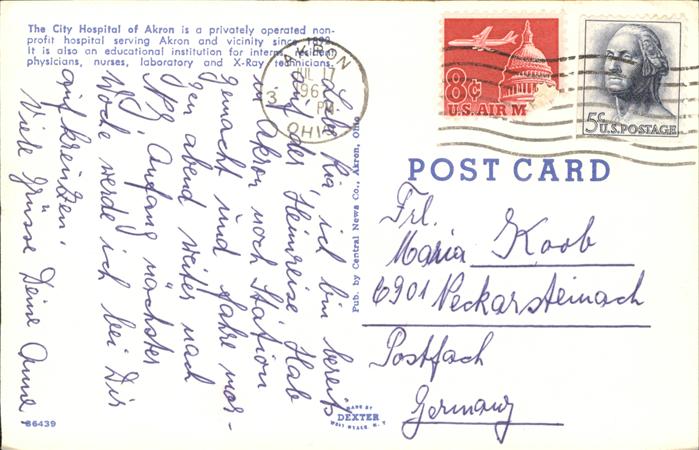 The City Hospital of Akron is a privately operated non-
profit hospital serving Akron and vicinity since 1892.
It is also an educational institution for interns, resident
physicians, nurses, laboratory and X-Ray technicians.
AKRON
JUL 17
PM
OHIO
8¢
U.S. AIR M
5¢ U.S. POSTAGE
POST CARD
ich bin bereits
auf der Heimreise. Hab
in Akron noch Station
gemacht und fahre mor-
gen abend weiter nach
N.Y. Anfang nächster
Woche werde ich bei Dir
Viele Grüsse Deine Anne
Frl.
Maria Koob
6901 Neckarsteinach
Postfach
Germany
Pub. by Central News Co., Akron, Ohio
MADE BY
DEXTER
WEST NYACK, N. Y.
86439